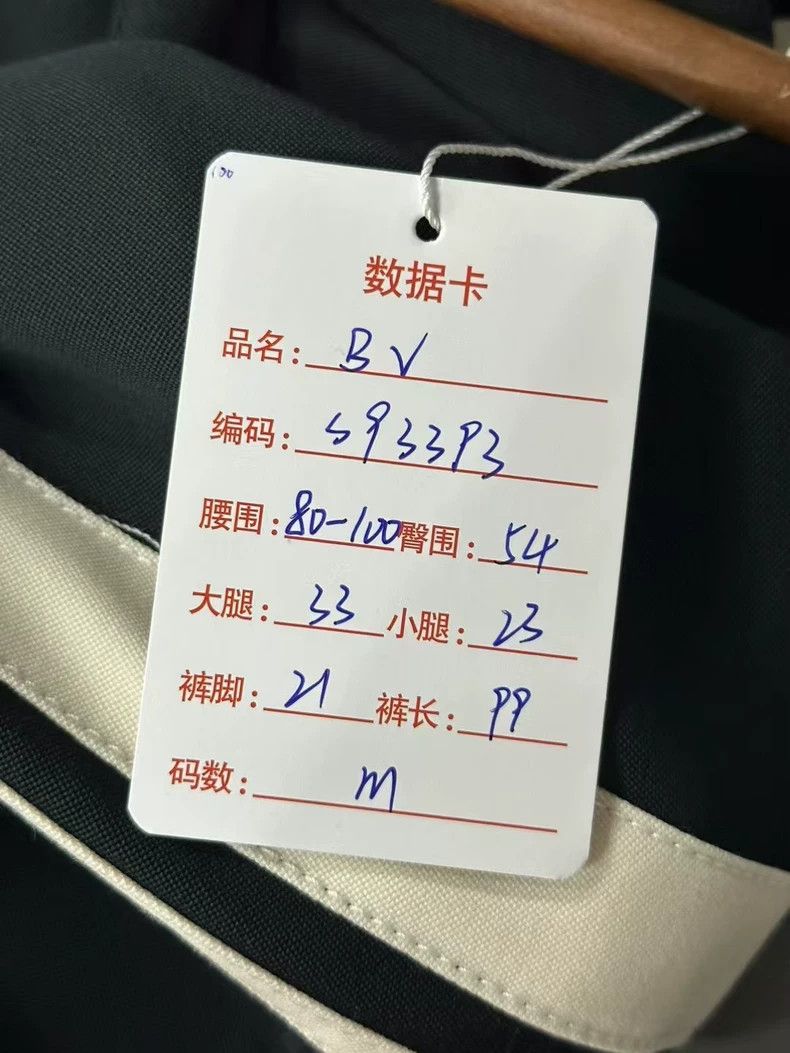 100
数据卡
品名: BV
编码: S93393
腰围: 80-100 臀围: 54
大腿: 33 小腿: 23
裤脚: 21 裤长: 99
码数: m